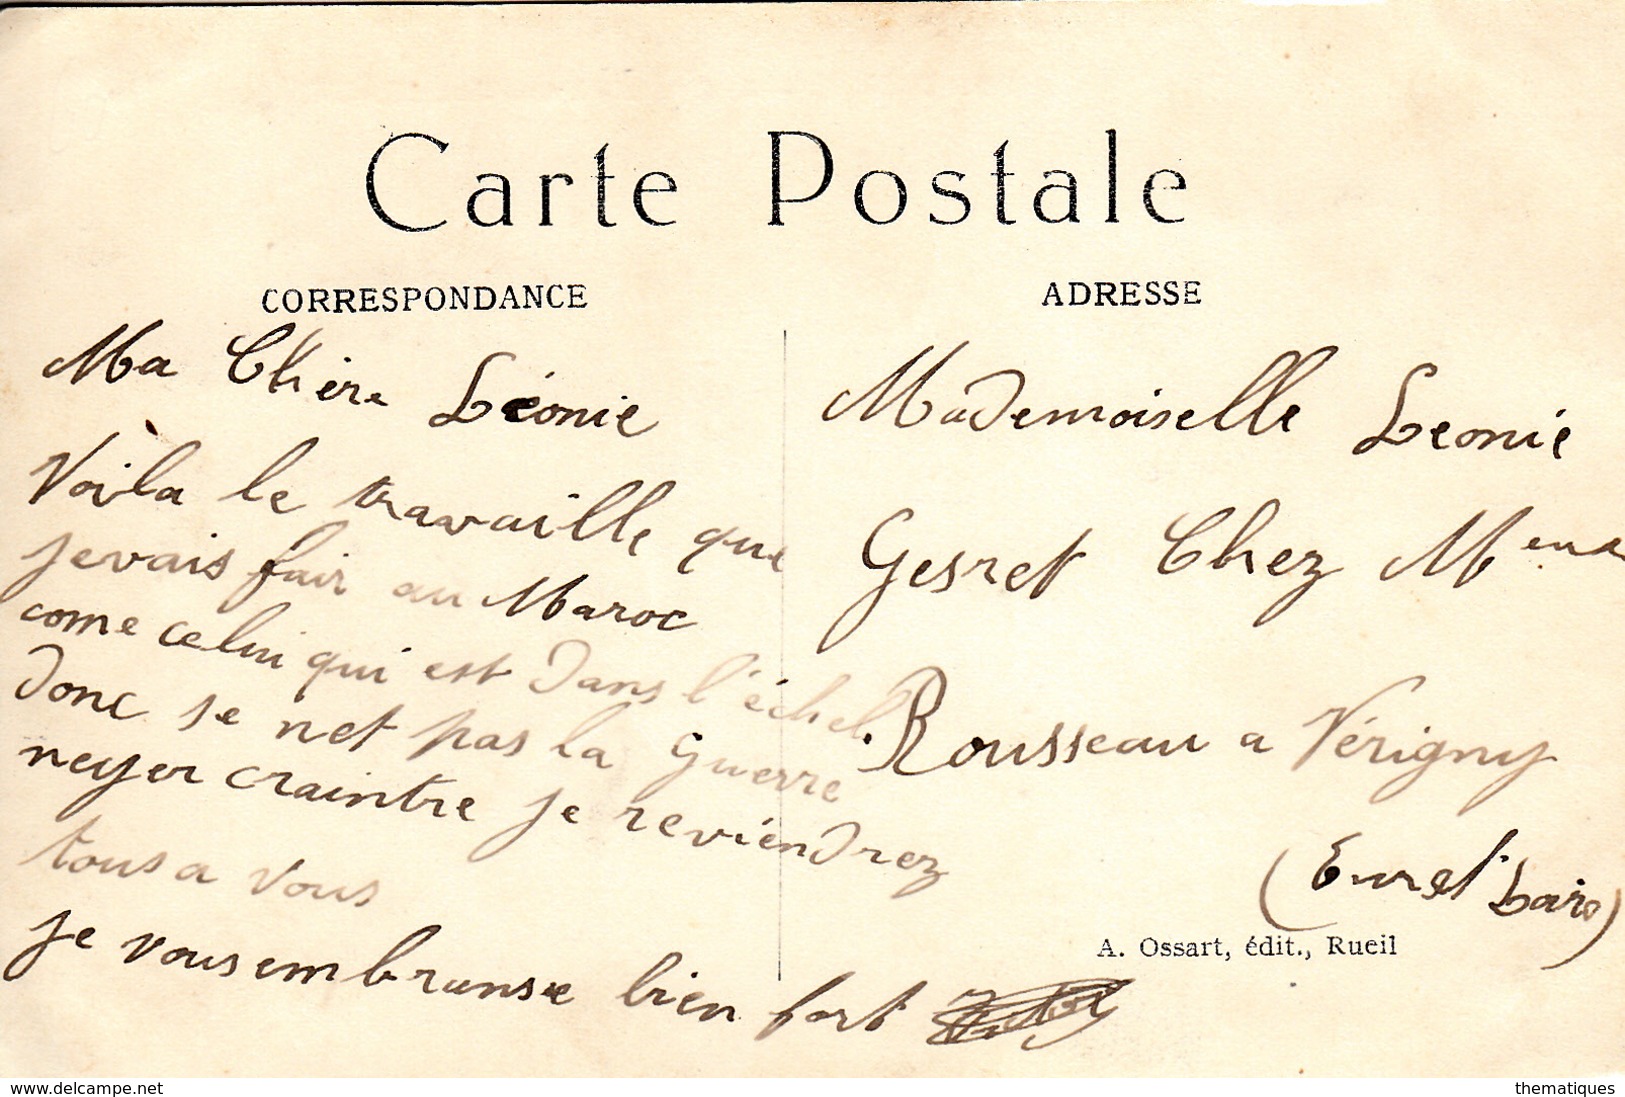 Carte Postale
CORRESPONDANCE
Ma Chère Léonie
Voila le travaille que
jevais fair au Maroc
come celui qui est dans l'échel
donc se net pas la Guerre
neyer craintre je reviendrez
tousa vous
je vous embransse bien fort
ADRESSE
Mademoiselle Leonie
Gesret Chez Meme
Rousseau a Vérigny
(Euret Loire)
A. Ossart, édit., Rueil
www.delcampe.net
thematiques